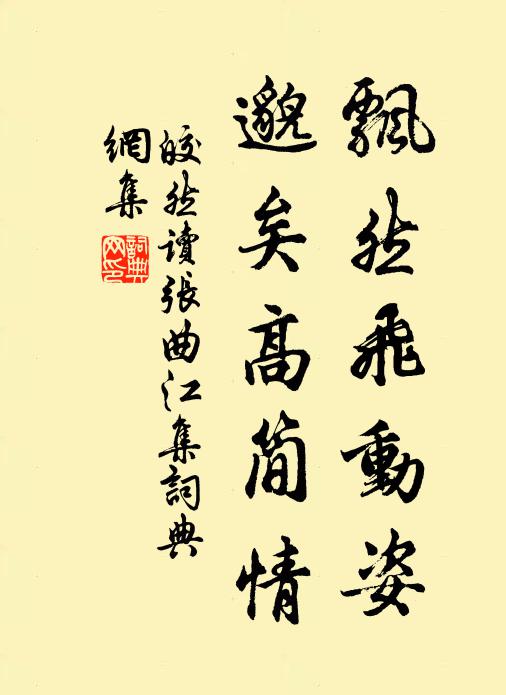 飄然飛動姿
邈矣高簡情
皎然讀張曲江集詞典
網集
詞典
网印